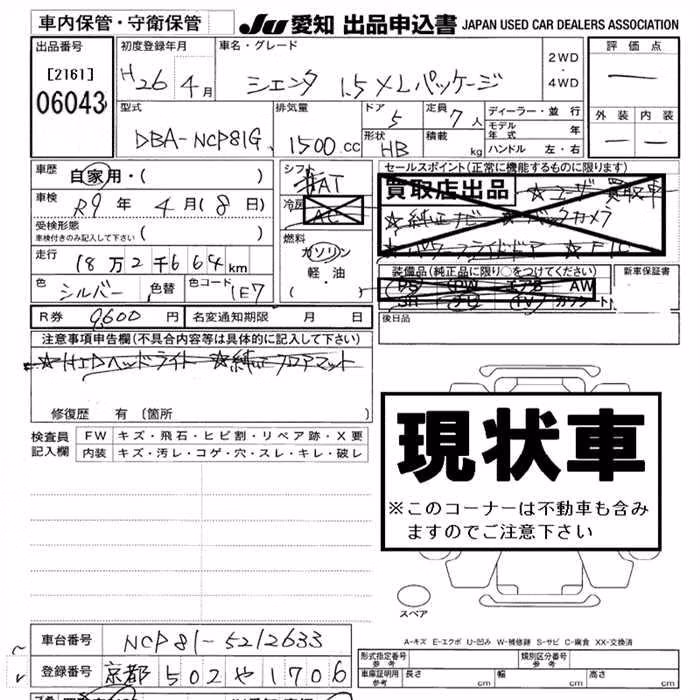 車内保管・守衛保管
JU 愛知 出品申込書 JAPAN USED CAR DEALERS ASSOCIATION
出品番号 初度登録年月 車名・グレード 2WD 評価点
[2161] H26 4月 シエンタ 1.5 XLパッケージ ・
06043 4WD
型式 排気量 ドア 定員 ディーラー・並行 外装 内装
DBA-NCP81G 1500cc 5 7人 モデル年式 年
形状 HB 積載 kg ハンドル 左・右
車歴 自家用・( ) シフト セールスポイント(正常に機能するものに限ります)
AT 買取店出品 ☆ユーザー買取車
車検 R9年 4月(8日) 冷房 AC ☆純正ナビ ☆バックカメラ
受検形態 ( ) ☆パワースライドドア ☆ETC
車検付きのみ記入して下さい
燃料
走行 18万2千664km ガソリン 装備品(純正品に限り○をつけてください) 新車保証書
軽・油 PS PW エアB AW
色 シルバー 色替 色コード 1E7 ( ・ ) SR ナビ TV カワシート
R券 9600円 名変通知期限 月 日 後日品
注意事項申告欄(不具合内容等は具体的に記入して下さい)
☆HIDヘッドライト ☆純正フロアマット
修復歴 有 [箇所 ]
現状車
※このコーナーは不動車も含み
ますのでご注意下さい
検査員 FW キズ・飛石・ヒビ割・リペア跡・X要
記入欄 内装 キズ・汚レ・コゲ・穴・スレ・キレ・破レ
スペア
A-キズ E-エクボ U-凹み W-補修跡 S-サビ C-腐食 XX-交換済
車台番号 NCP81-5212633
形式指定番号 参考 類別区分番号 参考
登録番号 京都 502 や 1706
車庫証明用 参考 長さ cm 幅 cm 高さ cm